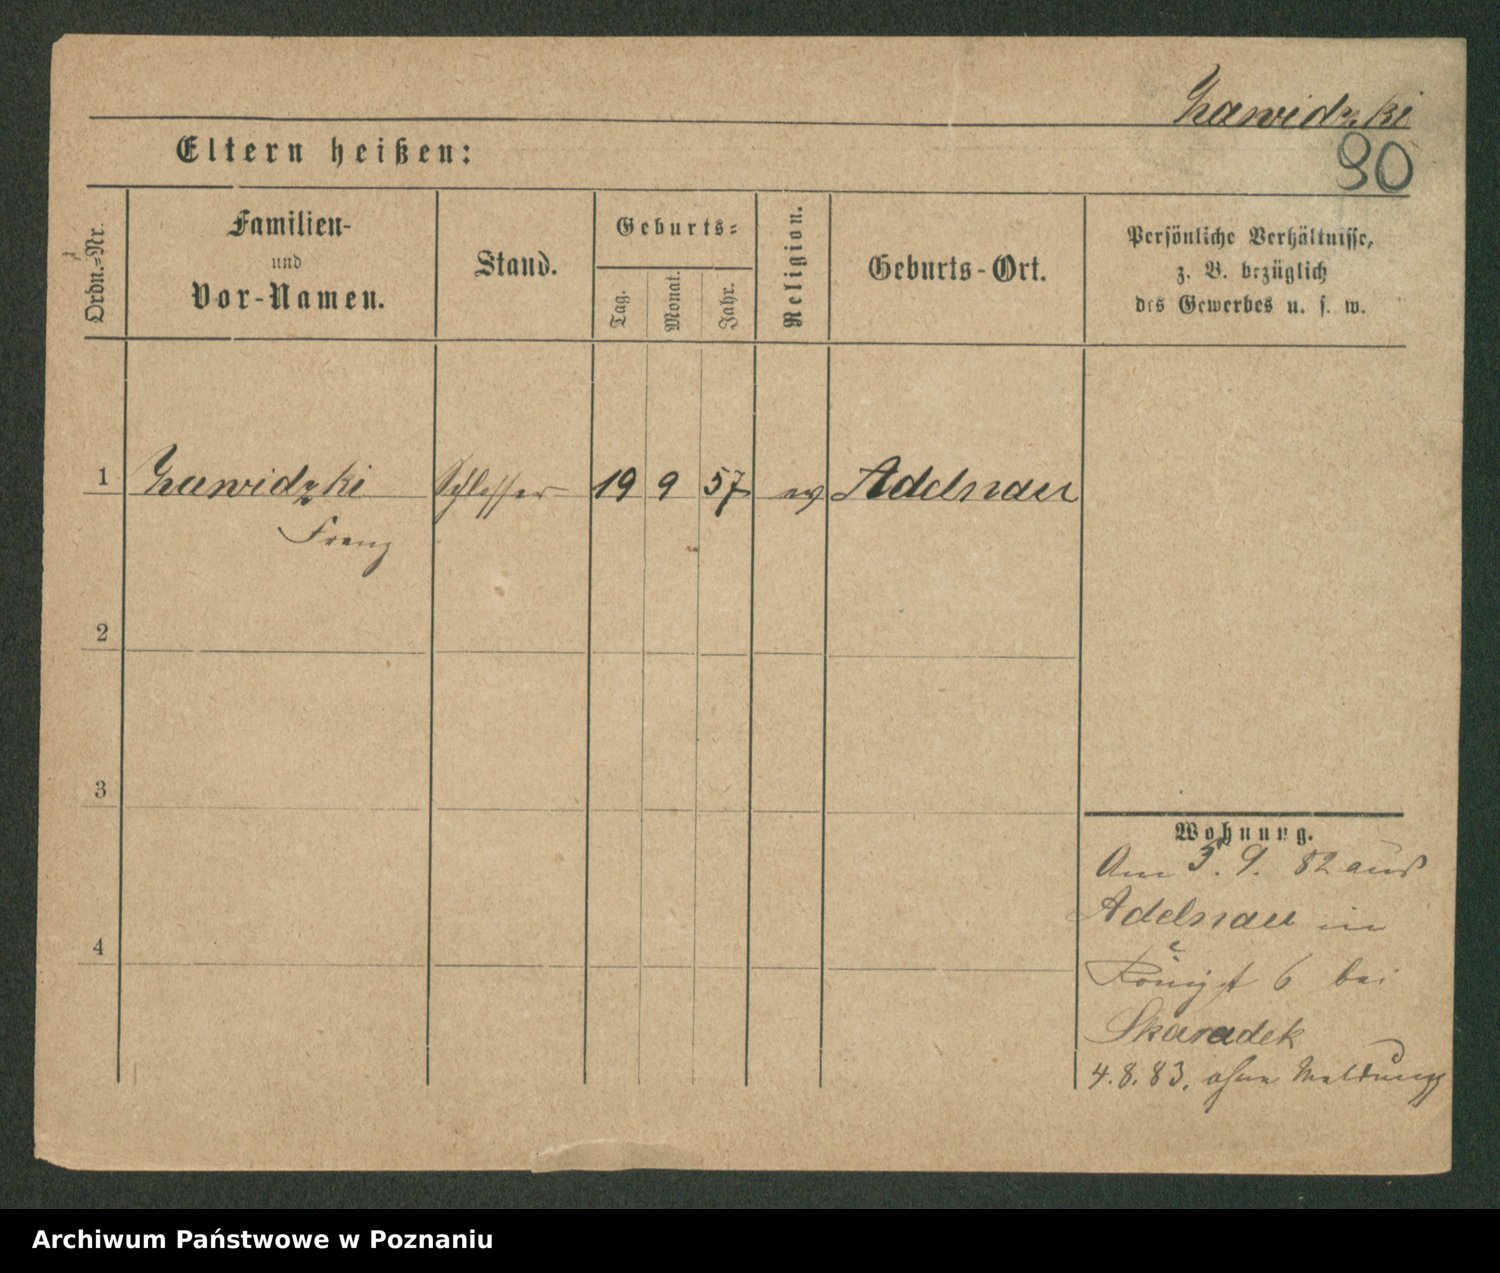 Zawidzki
90
Eltern heißen:
Ordn.-Nr.
Familien-
und
Vor-Namen.
Stand.
Geburts-
Tag.
Monat.
Jahr.
Religion.
Geburts-Ort.
Persönliche Verhältnisse,
z. B. bezüglich
des Gewerbes u. s. w.
1 Zawidzki Schlosser 19 9 57 Adelnau
Franz
2
3
Wohnung.
Am 3. 9. 82 aus
Adelnau in
6 bei
Skaradek
4
4. 8. 83. ohne Meldung
Archiwum Państwowe w Poznaniu